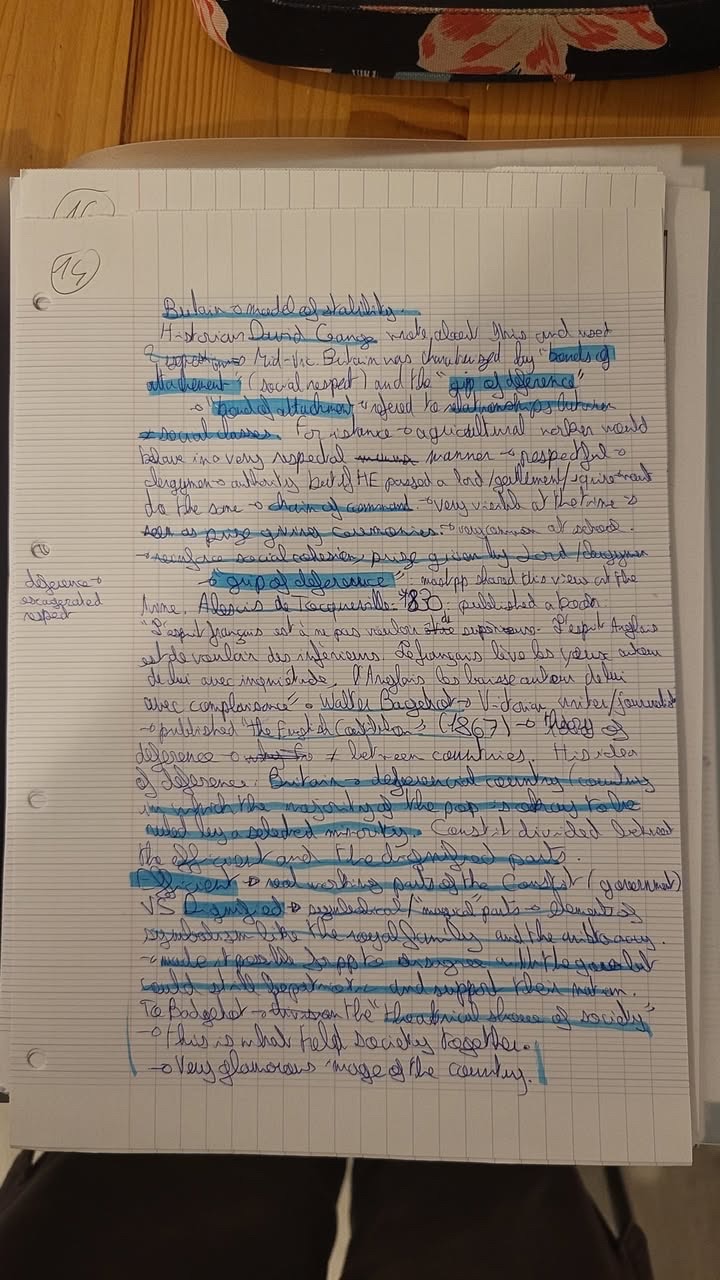 16
14
Britain → model of stability.
Historian David Gange wrote about this and used
Mid-Vic Britain was characterized by "bonds of
attachement" (social respect) and the "grip of deference"
→ "bond of attachment" refered to relationships between
≠ social classes. For instance → agricultural worker would
behave in a very respectful manner → respectful →
clergymen → authority but if HE passed a lord/gentlement/squire must
do the same → chain of command. → very visible at the time →
such as prize giving ceremonies. → very common at school.
→ reinforce social cohesion, prize given by Lord/clergyman
→ "grip of deference" : most pp shared this view at the
deference →
exagerated
repect
time. Alexis de Tocqueville 1830 : published a book
"L'esprit français est à ne pas vouloir de superieurs. L'esprit Anglais
est de vouloir des inférieurs. Le français lève les yeux autour
de lui avec inquiétude, l'Anglais les baisse autour de lui
avec complaisance". Walter Bagehot → Victorian writer/journalist
→ published "the English Constitution" (1867) → theory of
deference → ≠ between countries. His idea
of deference : Britain → deferencial country (country
in which the majority of the pop is okay to be
ruled by a selected minority. Constit divided between
the efficient and the dignified parts.
Efficient → real working parts of the Constit (government)
VS Dignified → symbolical/"magical" parts → element of
symbolism like the royal family and the aristocracy.
→ made it possible for pp to disagree with the gov but
could still be patriotic and support their nation.
To Bagehot → the "theatrical show of society"
→ this is what help society together.
→ Very glamorous image of the country.